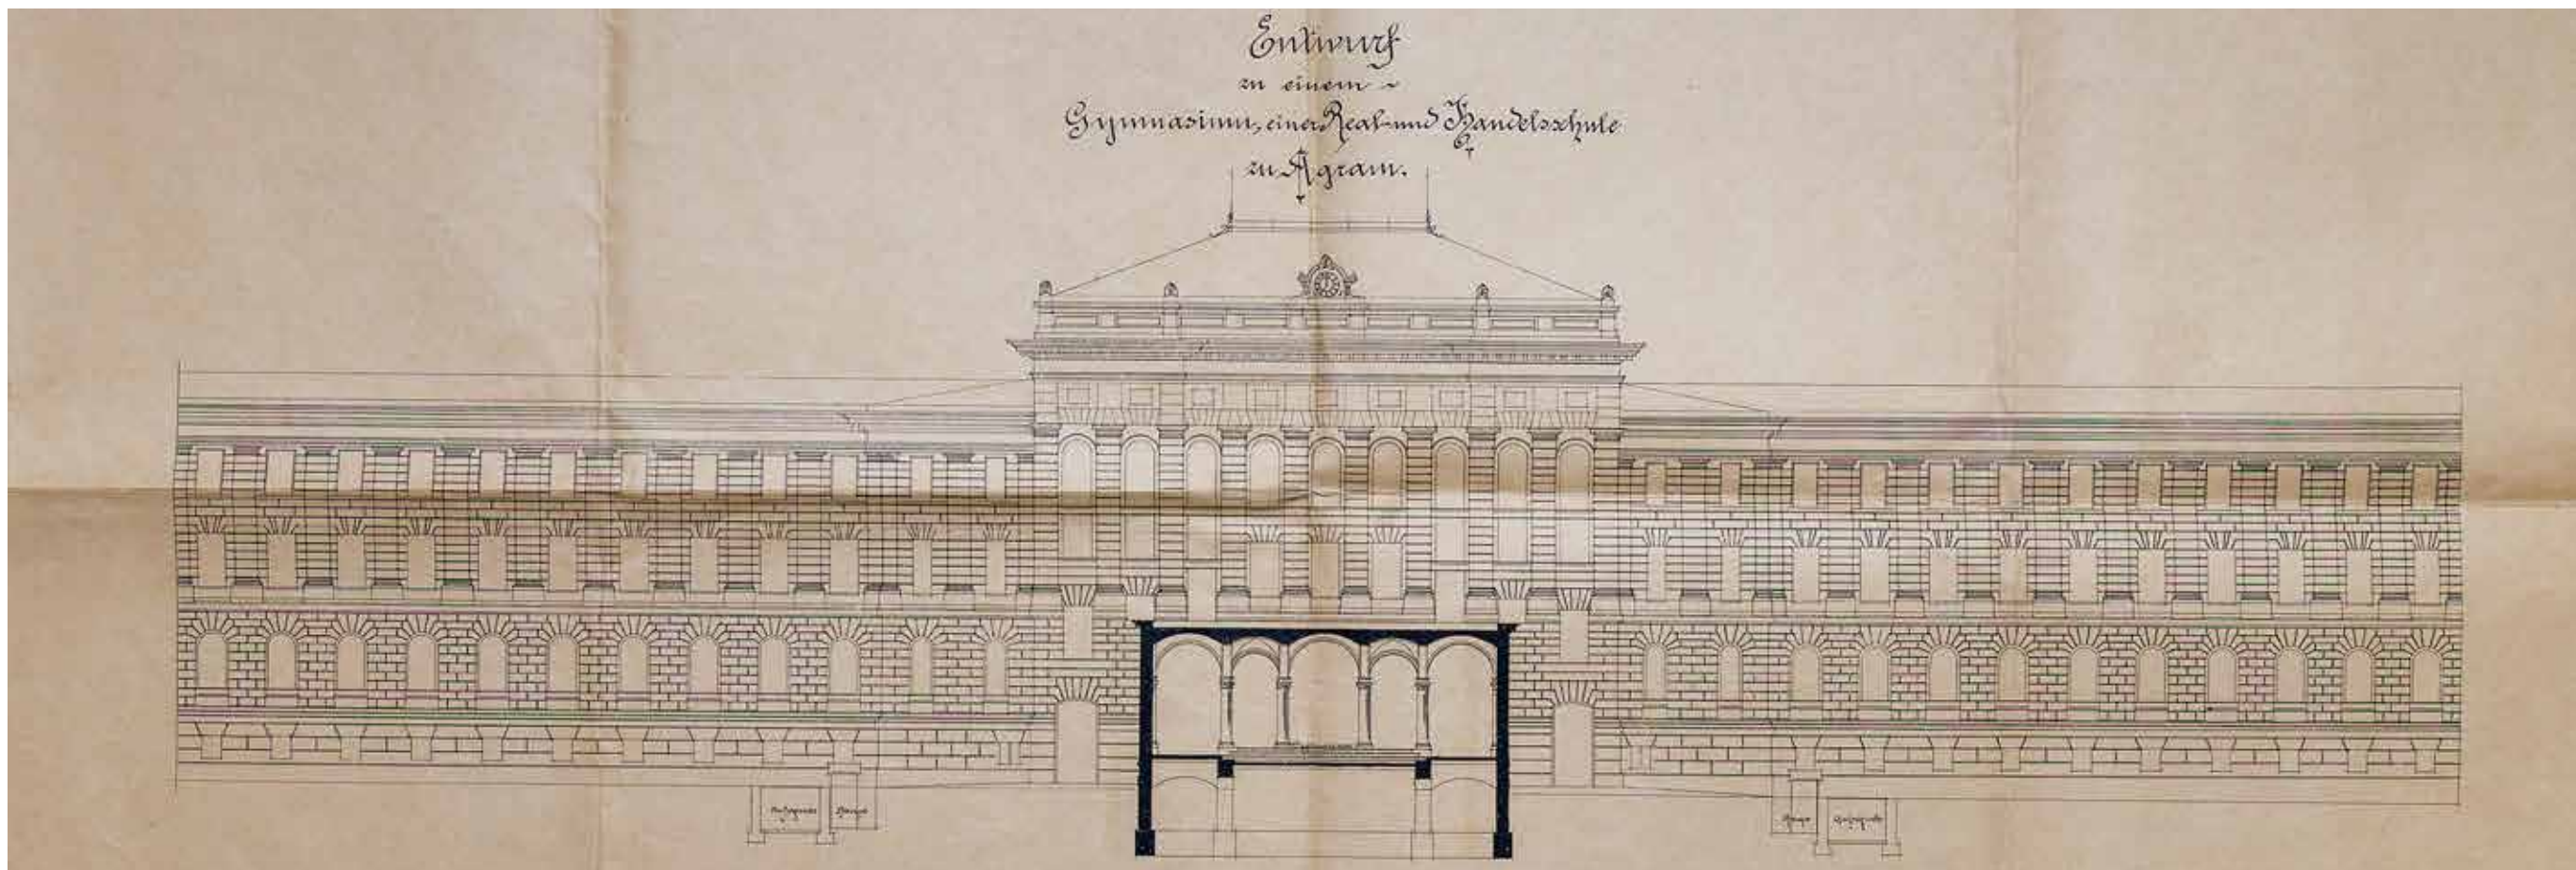 Entwurf
zu einem ~
Gymnasium, einer Real- und Handelsschule
zu Agram.